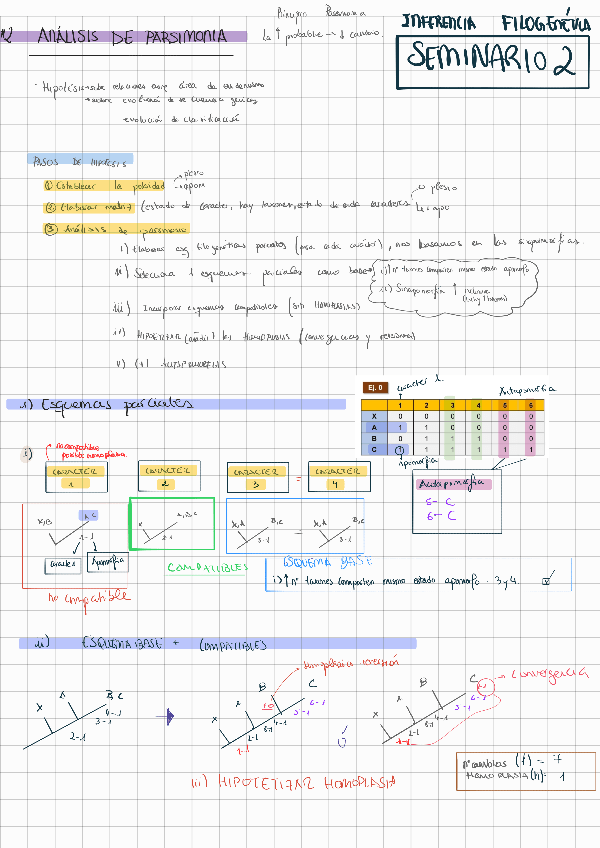 Principio Parsimonia
La ↑ probable → ↓ cambio
INFERENCIA FILOGENÉTICA
SEMINARIO 2
ANÁLISIS DE PARSIMONIA
Hipótesis sobre relaciones entre área de endemismo
evolución de clasificación
PASOS DE HIPÓTESIS
① Establecer la polaridad
plesio
apom
② Elaborar matriz (estado de caracter, hay taxones, estado de cada caracter
0 plesio
1 apo
③ Análisis de parsimonia
i) Elaborar esq filogenéticos parciales (para cada carácter), nos basamos en las sinapomorfias.
ii) Selecciona 1 esquema parciales como base
i) nº taxones comparten mismo estado apomorfo
ii) Sinapomorfia ↑
iii) Incorporar esquemas compatibles (sin HOMOPLASIAS)
iv) HIPOTETIZAR (añadir) las HOMOPLASIAS (convergencias y reversiones)
v) (+) AUTAPOMORFIAS
i) Esquemas parciales
Ej. 0
caracter 1.
Autapomorfía
1 2 3 4 5 6
X 0 0 0 0 0 0
A 1 1 0 0 0 0
B 0 1 1 1 0 0
C 1 1 1 1 1 1
Apomorfia
i)
incompatible
posible homoplasia
CARACTER 1
CARACTER 2
CARACTER 3
=
CARACTER 4
Autapomorfia
5- C
6- C
X,B
A,C
1-1
X
A,B,C
2-1
X,A
B,C
3-1
X,A
B,C
4-1
Caracter
Apomorfia
COMPATIBLES
ESQUEMA BASE
i) ↑ nº taxones comparten mismo estado apomorfo. 3 y 4.
No compatible
ii) ESQUEMA BASE + COMPATIBLES
X
A
B C
4-1
3-1
2-1
homoplasia reversión
X
A
B
C
1-0
6-1
5-1
4-1
3-1
2-1
1-1
Ú
Convergencia
X
A
B
C
6-1
5-1
4-1
3-1
2-1
1-1
iii) HIPOTETIZAR HOMOPLASIA
nº cambios (l) = 7
HOMOPLASIA (h): 1